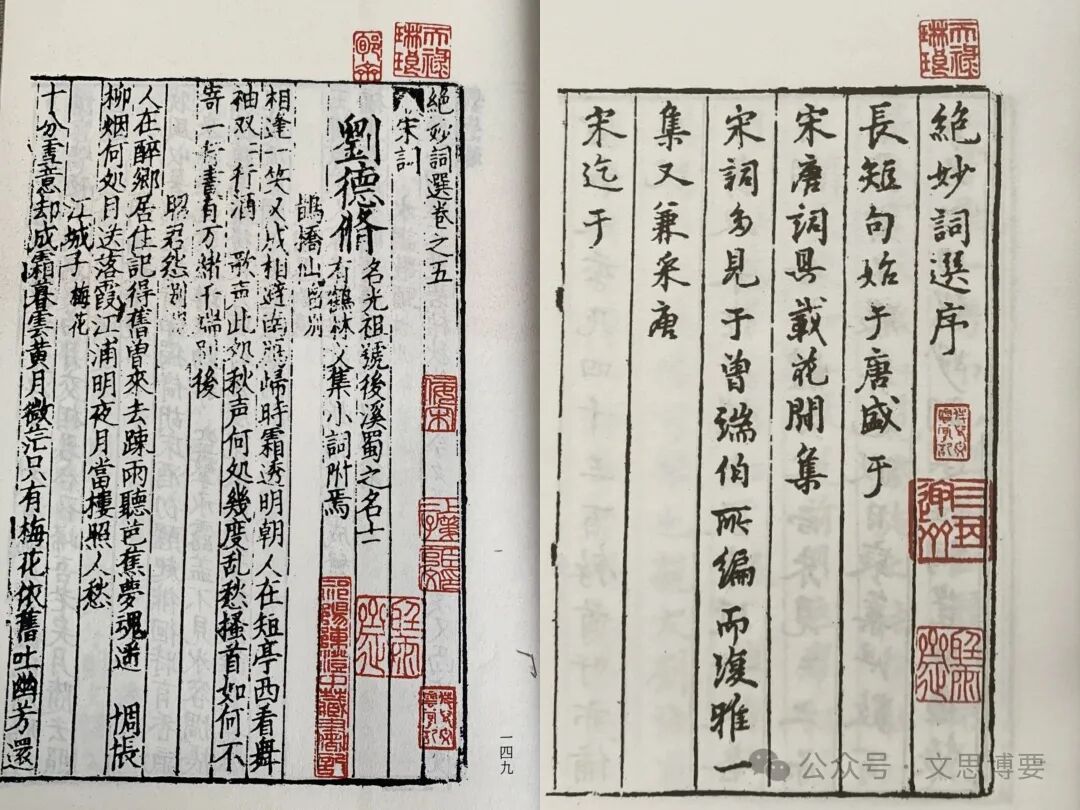 絶妙詞選序
長短句始于唐盛于
宋唐詞具載花間集
宋詞多見于曾端伯所編而復雅一
集又兼采唐
宋迄于
天祿琳琅
公众号·文思博要
絶妙詞選卷之五
宋詞
劉德脩 名光祖號後溪蜀之名士
有鶴林文集小詞附焉
鵲橋仙 留别
相逢一笑又成相避南鴈歸時霜透明朝人在短亭西看舞
袖双〻行酒 歌声此处秋声何处幾度乱愁搔首如何不
寄一行書有万緒千端别後
昭君怨 别
人在醉鄉居住記得舊曾來去踈雨聽芭蕉夢魂遥 惆悵
柳烟何处目送落霞江浦明夜月當樓照人愁
江城子 梅花
十分雪意却成霜暮雲黄月微茫只有梅花依舊吐幽芳還
天祿琳琅
祁陽陳澄中藏書記
一四九